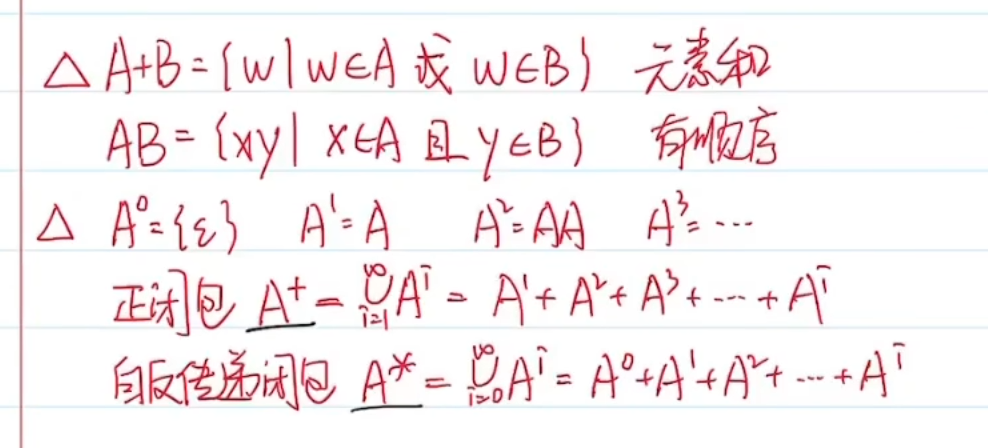 △ A+B={w|w∈A 或 w∈B} 元素和
AB={xy| x∈A 且 y∈B} 有顺序
△ A⁰={ε} A¹=A A²=AA A³=⋯
正闭包 A⁺=⋃_{i=1}^{∞}Aⁱ=A¹+A²+A³+⋯+Aⁱ
自反传递闭包 A*=⋃_{i=0}^{∞}Aⁱ=A⁰+A¹+A²+⋯+Aⁱ